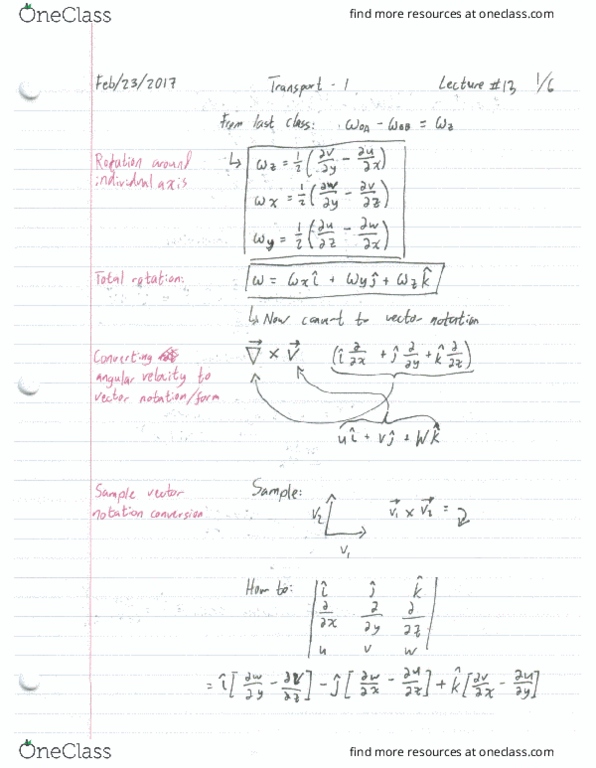 OneClass find more resources at oneclass.com
Feb/23/2017 Transport - 1 Lecture #13 1/6
From last class: ω_OA - ω_OB = ω_z
Rotation around individual axis
↳ ω_z = 1/2 (∂v/∂y - ∂u/∂x)
ω_x = 1/2 (∂w/∂y - ∂v/∂z)
ω_y = 1/2 (∂u/∂z - ∂w/∂x)
Total rotation: ω = ω_x î + ω_y ĵ + ω_z k̂
↳ Now convert to vector notation
Converting angular velocity to vector notation/form
∇⃗ × V⃗ (î ∂/∂x + ĵ ∂/∂y + k̂ ∂/∂z)
uî + vĵ + wk̂
Sample vector notation conversion
Sample:
V₂ V⃗₁ × V⃗₂ =
V₁
How to: | î ĵ k̂ |
| ∂/∂x ∂/∂y ∂/∂z |
| u v w |
= î [∂w/∂y - ∂v/∂z] - ĵ [∂w/∂x - ∂u/∂z] + k̂ [∂v/∂x - ∂u/∂y]
OneClass find more resources at oneclass.com